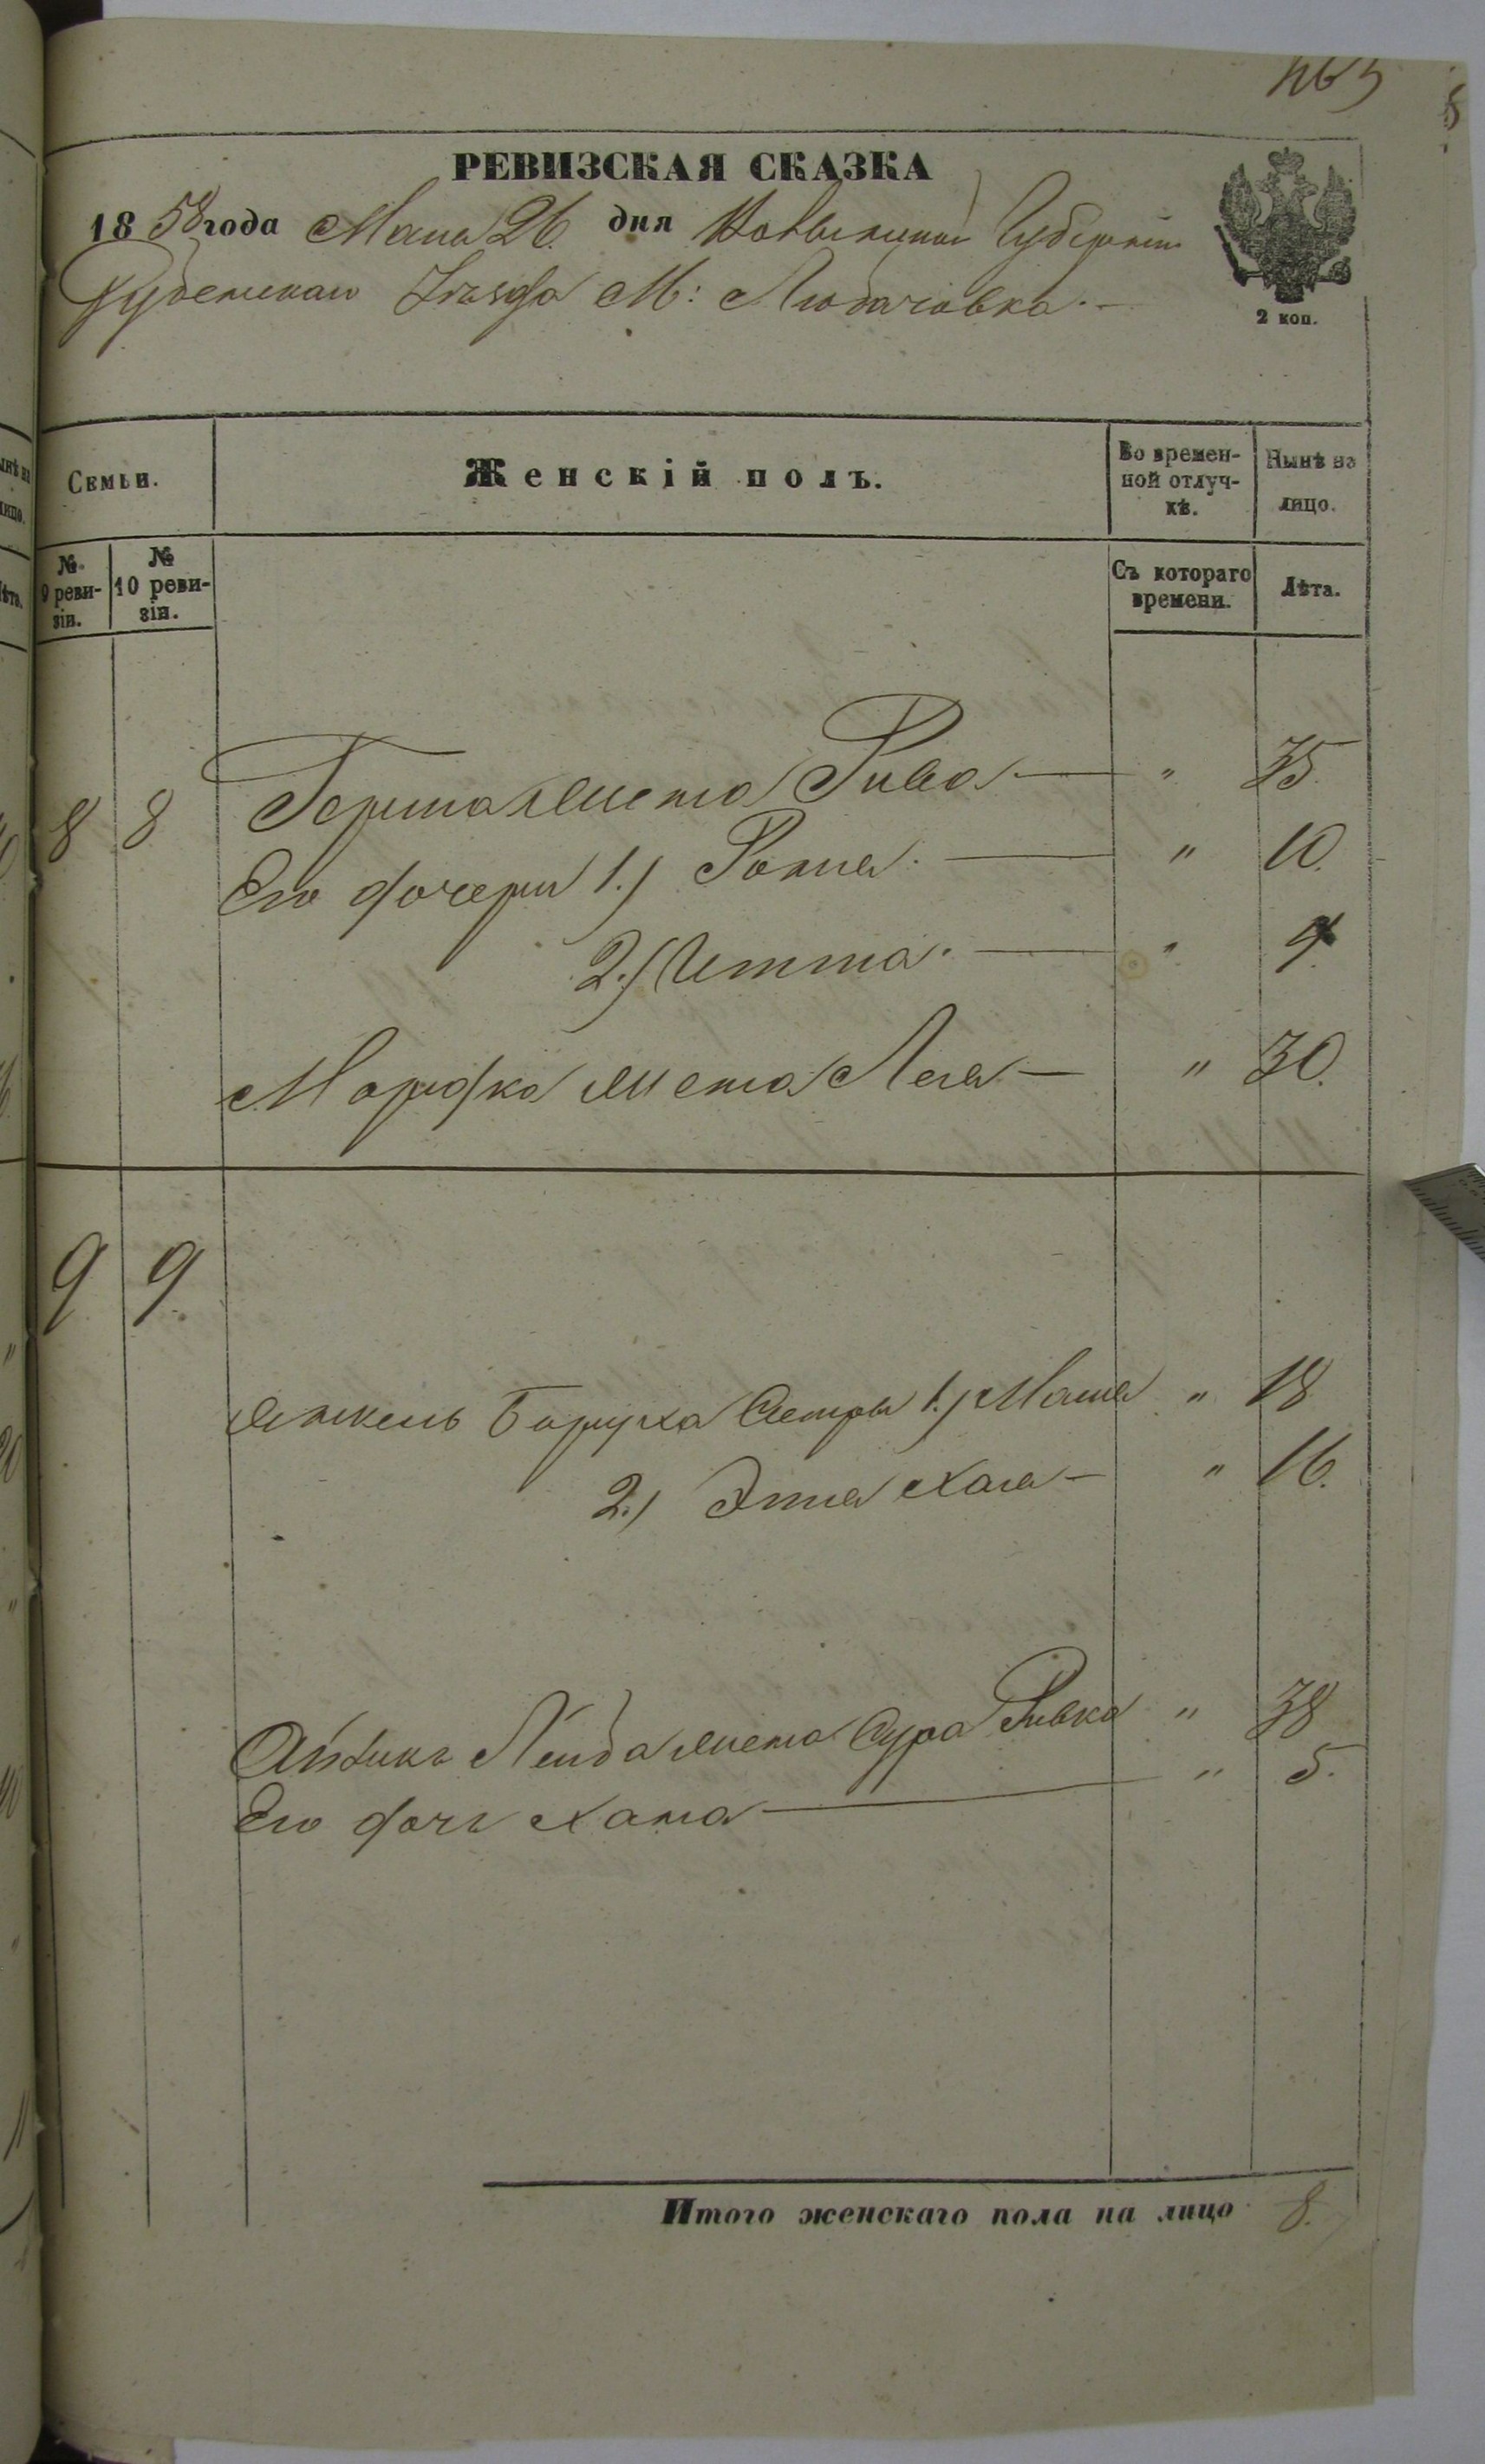 465
РЕВИЗСКАЯ СКАЗКА
1858 года Мая 26. дня Волынской Губернии
Дубенскаго Уѣзда М:
2 коп.
Семьи.
Женскій полъ.
Во времен-
ной отлуч-
кѣ.
Нынѣ на
лицо.
№
9 реви-
зіи.
№
10 реви-
зіи.
Съ котораго
времени.
Лѣта.
8 8 Гершка жена Рива — " 35.
Его дочери 1.) — " 10.
2.) Итта. — "
Мордка жена Лея — " 30.
9 9.
Боруха Сестры 1.) Маша " 18
2.) Хая — " 16.
Лейба жена Сура Ривка " 38
Его дочь Хана — " 5.
Итого женскаго пола на лицо 8.